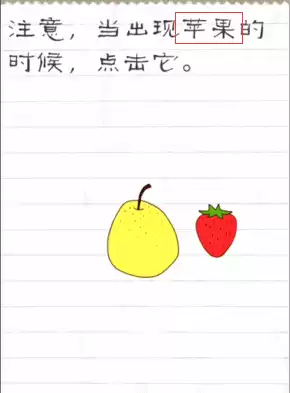 注意，当出现苹果的
时候，点击它。